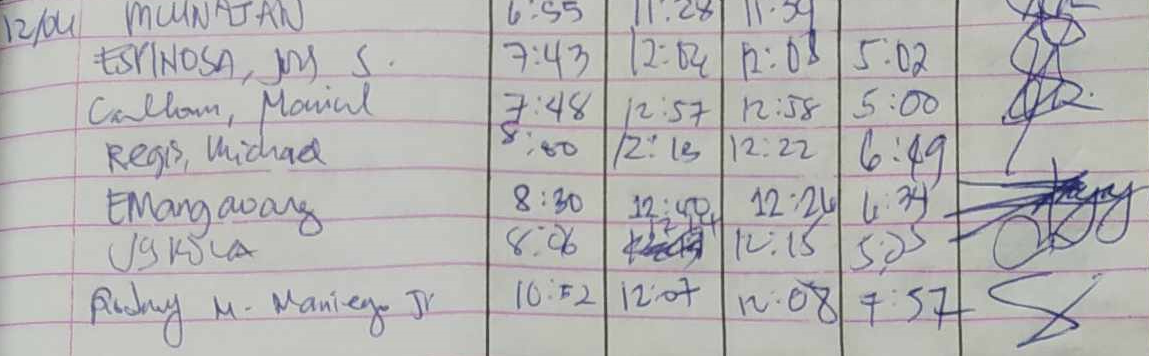 12/04 MUNAJAN 6:55 11:28 11:39
ESPINOSA, S. 7:43 12:04 12:08 5:02
7:48 12:57 12:58 5:00
Regis, Michael 8:00 12:13 12:22 6:49
EMangaoang 8:30 12:40 12:26 6:34
8:06 12:15 5:25
M. Maniego Jr 10:52 12:07 12:08 7:57